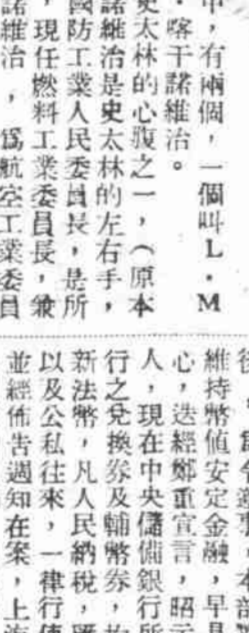 中，有兩個，一個叫L．M
．喀干諾維治。
史太林的心腹之一，（原本
諾維治是史太林的左右手，
國防工業人民委員長，是所
，現任燃料工業委員長，兼
諾維治，爲航空工業委員
維持幣值安定金融，早具
心，迭經鄭重宣言，昭示
人，現在中央儲備銀行所
行之兌換券及輔幣券，均
新法幣，凡人民納稅，匯
以及公私往來，一律行使
並經佈告週知在案，上海